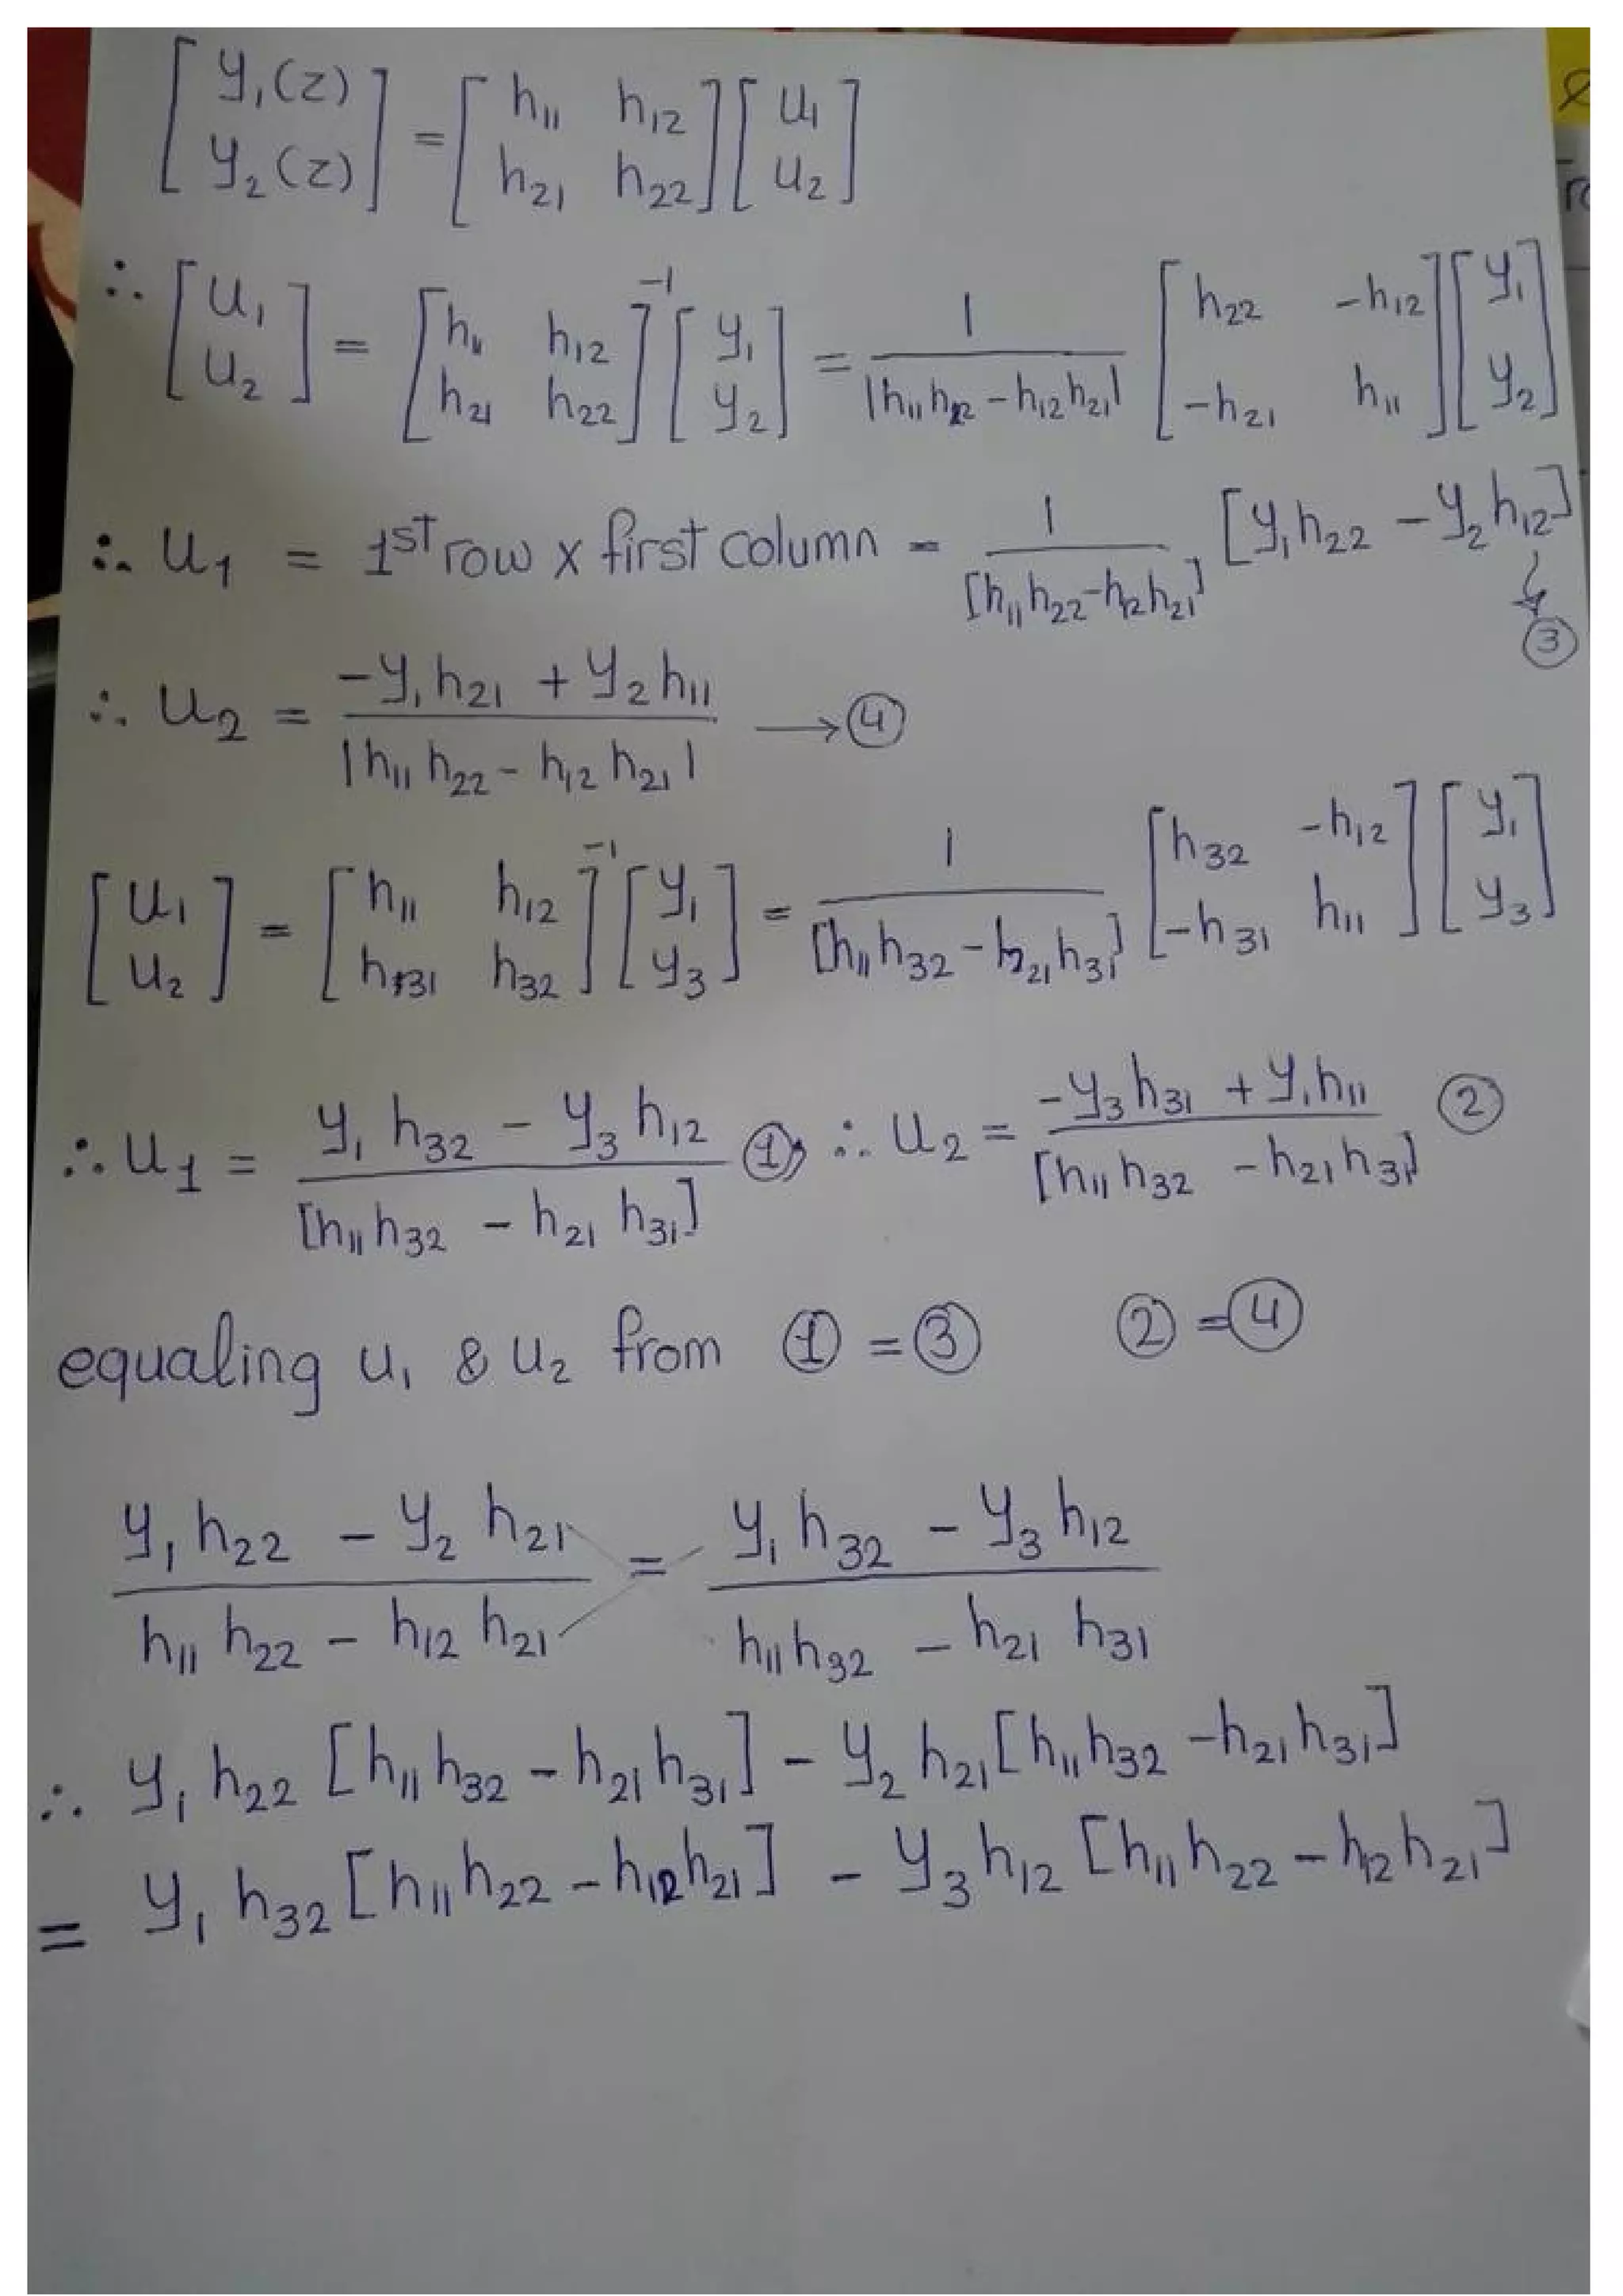 [y₁(z) y₂(z)] = [h₁₁ h₁₂ h₂₁ h₂₂] [u₁ u₂]
∴ [u₁ u₂] = [h₁₁ h₁₂ h₂₁ h₂₂]⁻¹ [y₁ y₂] = 1 / |h₁₁h₂₂ - h₁₂h₂₁| [h₂₂ -h₁₂ -h₂₁ h₁₁] [y₁ y₂]
∴ u₁ = 1st row x first column = 1 / [h₁₁h₂₂-h₁₂h₂₁] [y₁h₂₂ - y₂h₁₂] → ③
∴ u₂ = -y₁h₂₁ + y₂h₁₁ / |h₁₁h₂₂ - h₁₂h₂₁| → ④
[u₁ u₂] = [h₁₁ h₁₂ h₃₁ h₃₂]⁻¹ [y₁ y₃] = 1 / [h₁₁h₃₂ - h₂₁h₃₁] [h₃₂ -h₁₂ -h₃₁ h₁₁] [y₁ y₃]
∴ u₁ = y₁h₃₂ - y₃h₁₂ / [h₁₁h₃₂ - h₂₁h₃₁] ① ∴ u₂ = -y₃h₃₁ + y₁h₁₁ / [h₁₁h₃₂ - h₂₁h₃₁] ②
equaling u₁ & u₂ from ① = ③ ② = ④
y₁h₂₂ - y₂h₂₁ / h₁₁h₂₂ - h₁₂h₂₁ = y₁h₃₂ - y₃h₁₂ / h₁₁h₃₂ - h₂₁h₃₁
∴ y₁h₂₂ [h₁₁h₃₂ - h₂₁h₃₁] - y₂h₂₁ [h₁₁h₃₂ - h₂₁h₃₁]
= y₁h₃₂ [h₁₁h₂₂ - h₁₂h₂₁] - y₃h₁₂ [h₁₁h₂₂ - h₁₂h₂₁]